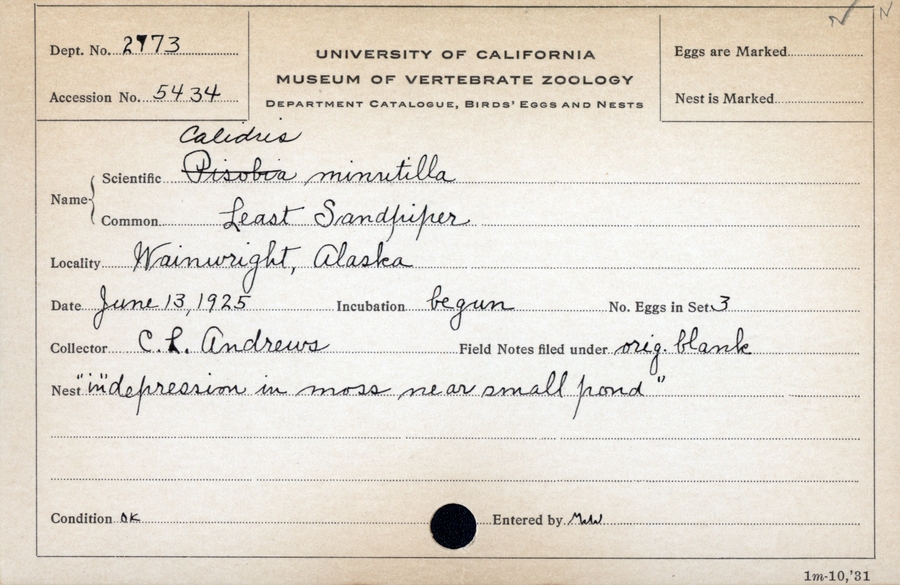 Dept. No. 2973
UNIVERSITY OF CALIFORNIA
MUSEUM OF VERTEBRATE ZOOLOGY
DEPARTMENT CATALOGUE, BIRDS' EGGS AND NESTS
Accession No. 5434
Eggs are Marked
Nest is Marked
Calidris
Name Scientific Pisobia minutilla
Common Least Sandpiper
Locality Wainwright, Alaska
Date June 13, 1925 Incubation begun No. Eggs in Set 3
Collector C. L. Andrews Field Notes filed under orig. blank
Nest "in" depression in moss near small pond"
Condition OK Entered by
1m-10,'31